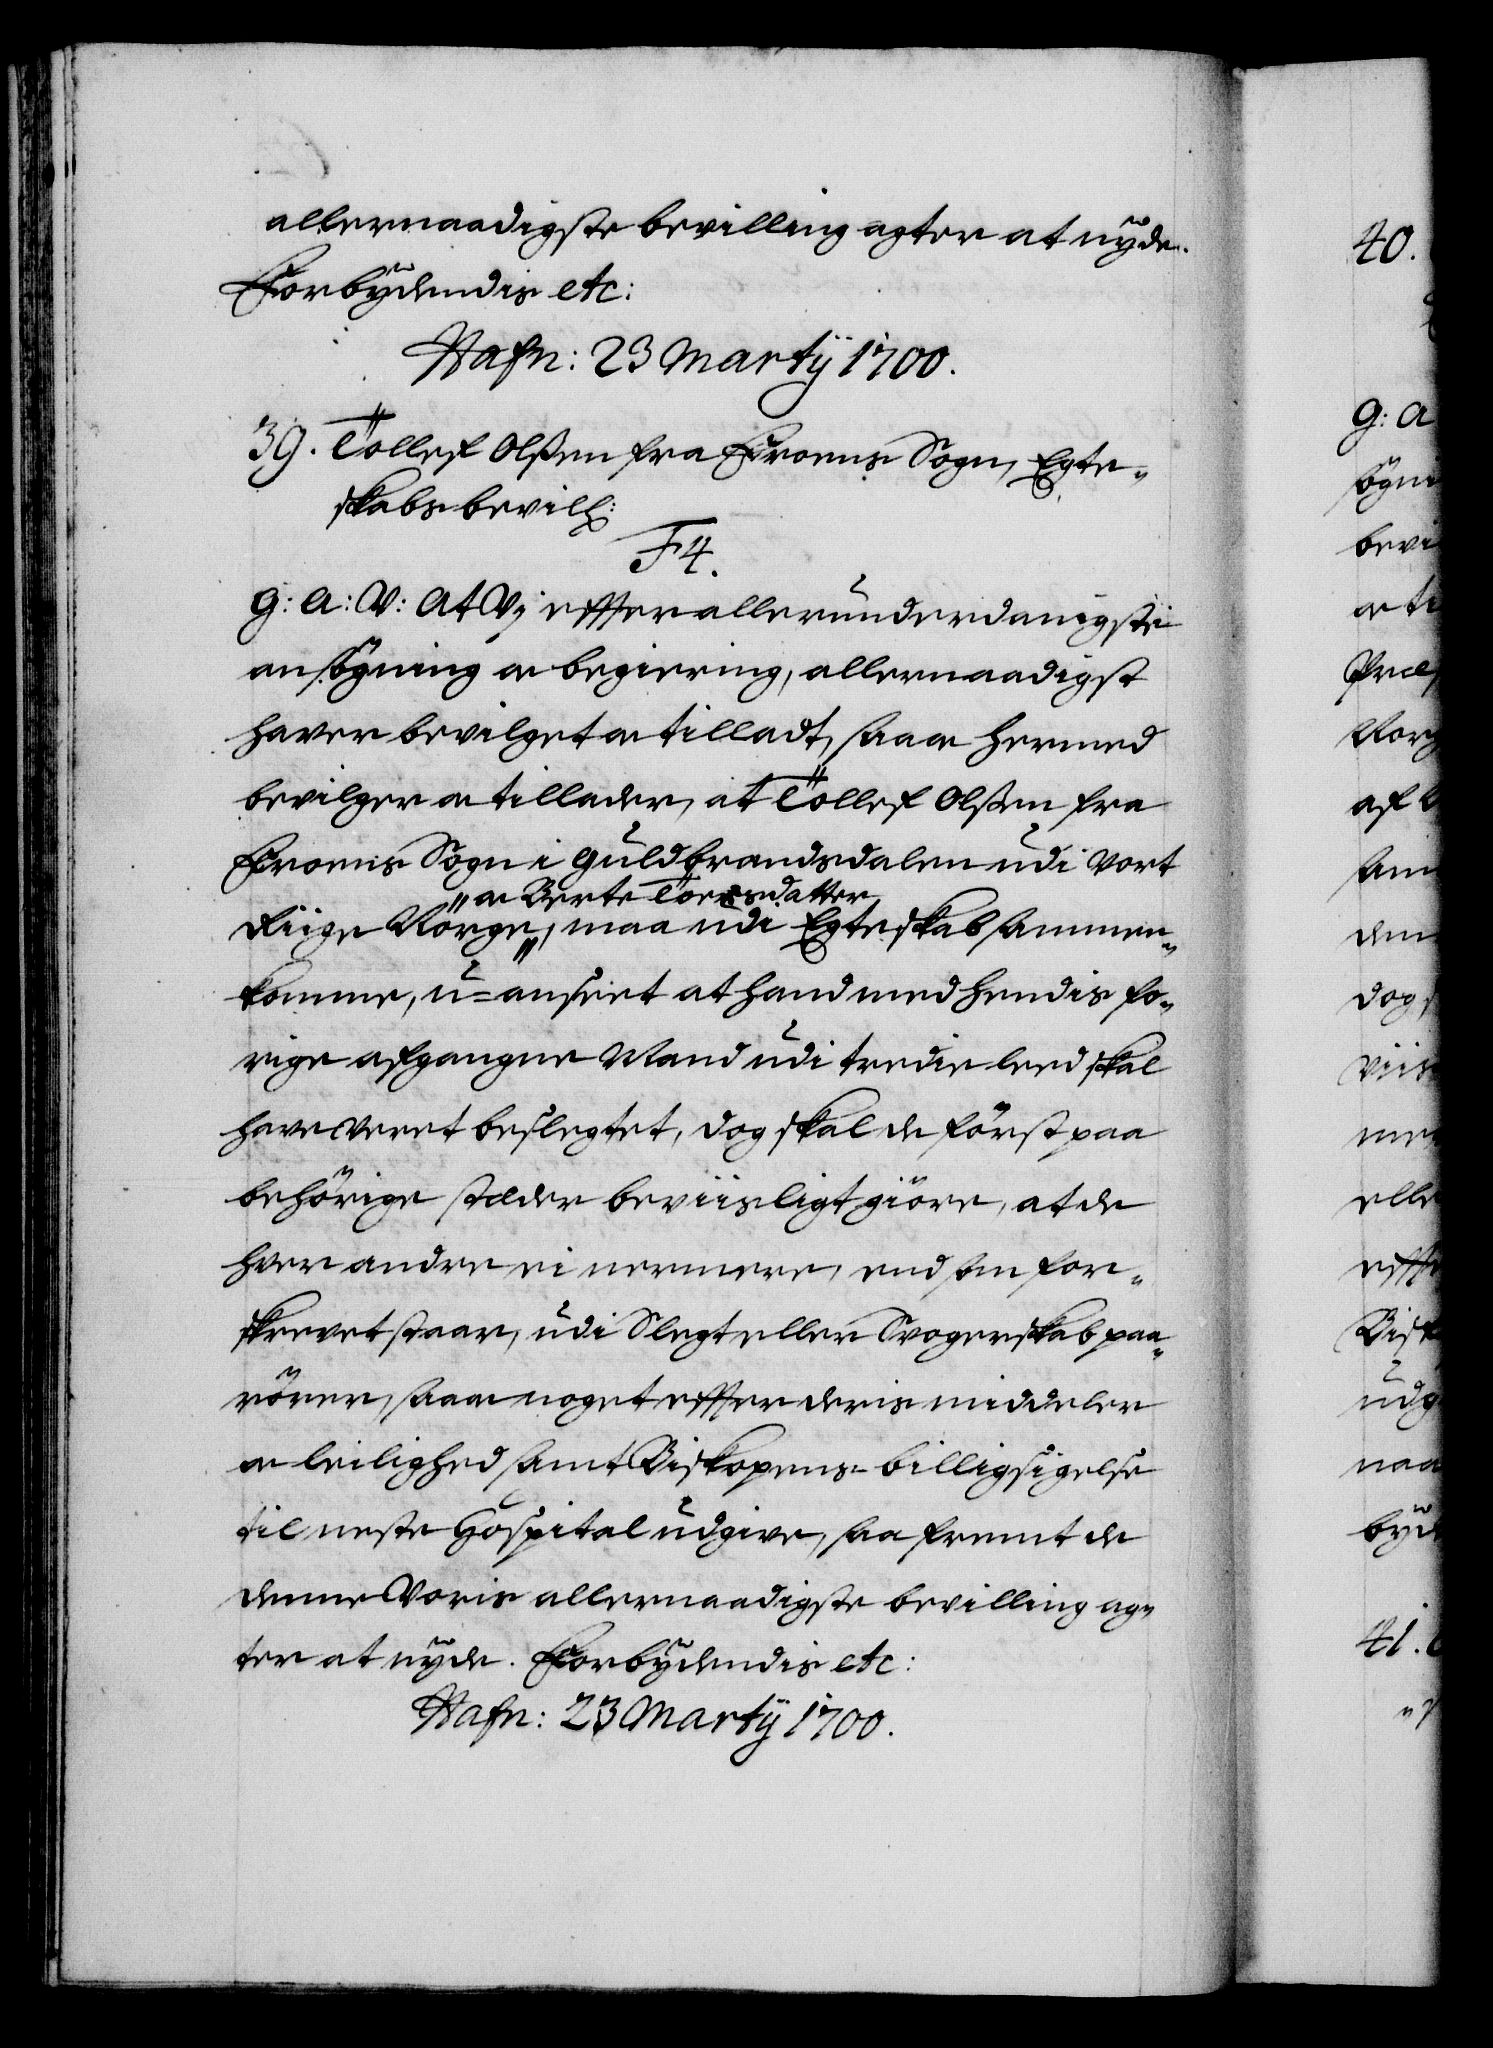 allernaadigste bevilling agter at nÿde.
Forbÿdendis etc:
Hafn: 23 Martÿ 1700.
39. Töllef Olßen fra Froens Sogn, Egte-
skabs bevill:
F 4.
G: A: V: At Vj effter allerunderdanigste
ansögning og begiering, allernaadigst
haver bevilget og tilladt, saa og hermed
bevilger og tillader, at Töllef Olßen fra
Froens Sogn i Guldbrandsdalen udi Vort
og Berte Toersdatter
Riige Norge, maa udi Egteskab sammen-
komme, u-anseet at hand med hendis fo-
rige afgangne Mand udi tredie leed skal
have veret beslegtet, dog skal de först paa
behörige stæder beviisligt giöre, at de
hver andre ei nermere, end som for-
skrevet staar, udi Slegt eller Svogerskab paa-
rörer, saa og noget effter deris middeler
og leilighed samt Biskopens billigsigelse
til neste Hospital udgive, saa fremt de
denne Voris allernaadigste bevilling ag-
ter at nÿde. Forbÿdendis etc:
Hafn: 23 Martÿ 1700.
40.
G: A
bevi
og ti
af
dog
41.